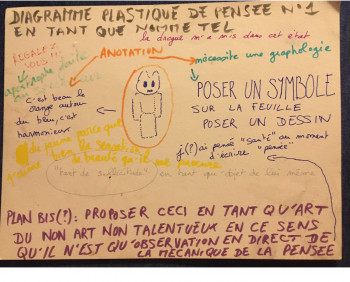 DIAGRAMME PLASTIQUE DE PENSEE N°1
EN TANT QUE NOMME TEL
la drogue m'a mis dans cet état
ANOTATION
nécessite une graphologie
c'est beau le
orange autour
du bleu, c'est
harmonieux
POSER UN SYMBOLE
SUR LA FEUILLE
POSER UN DESSIN
j(?)ai pensé "santé" au moment
d'écrire "pensée"
du jaune parce que
de beauté qu'il me procure
en tant que objet de lui même
PLAN BIS(?): PROPOSER CECI EN TANT QU'ART
DU NON ART NON TALENTUEUX EN CE SENS
QU'IL N'EST QU'OBSERVATION EN DIRECT DE
LA MÉCANIQUE DE LA PENSEE